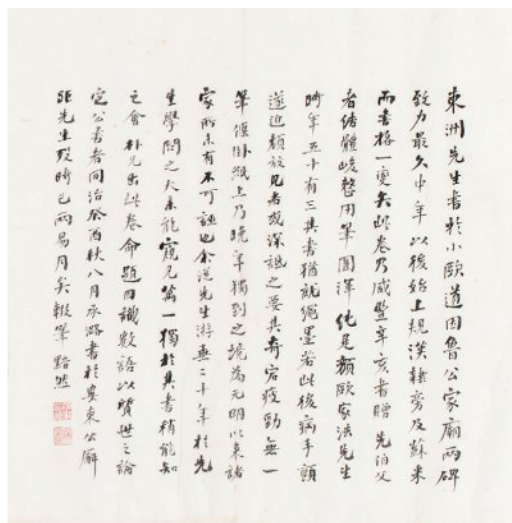 東洲先生書於小歐道因魯公家廟兩碑
致力最久中年以後始上規漢隸旁及蘇米
而書格一變矣此卷乃咸豐辛亥書贈先伯父
者結體峻整用筆圓渾純是顏歐家法先生
時年五十有三其書猶就繩墨若此後病手顫
遂近頹放見者或深詆之要其奇宕疲勁無一
筆偃掛紙上乃晚年獨到之境為元明以來諸
家所未有不可誣也余從先生游垂二十年於先
生學問之大未能窺見萬一獨於其書稍能知
之會朴兄出此卷命題因識數語以質世之論
定公書者同治癸酉秋八月承潞書於婁東公廨
距先生歿時已兩易月矣輟筆黯然